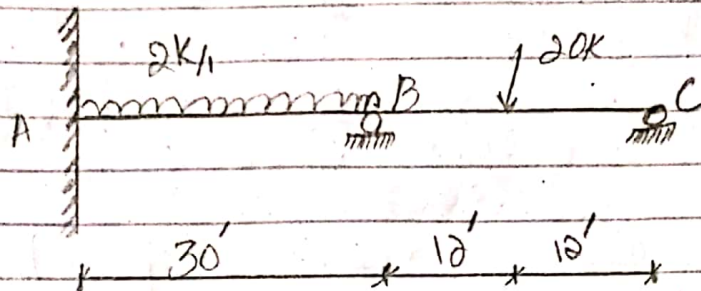 2K/'
20K
A
B
C
30'
12'
12'